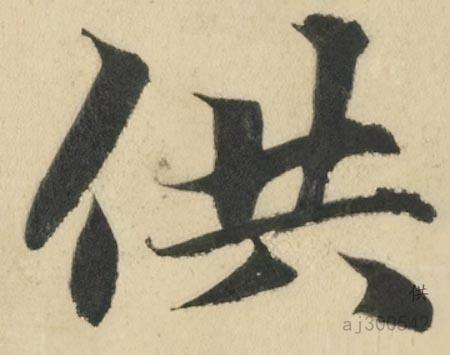 供
供
aj300542